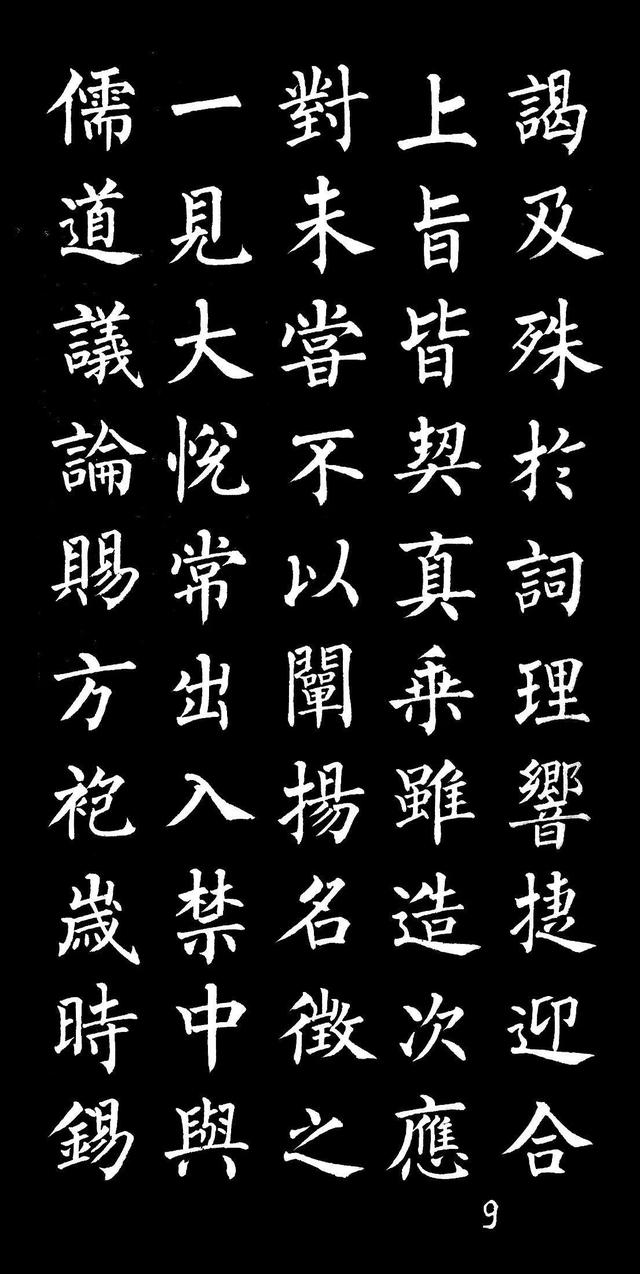 謁及殊於詞理響捷迎合
上旨皆契真乗雖造次應
對未嘗不以闡揚名徴之
一見大悦常出入禁中與
儒道議論賜方袍嵗時錫
9